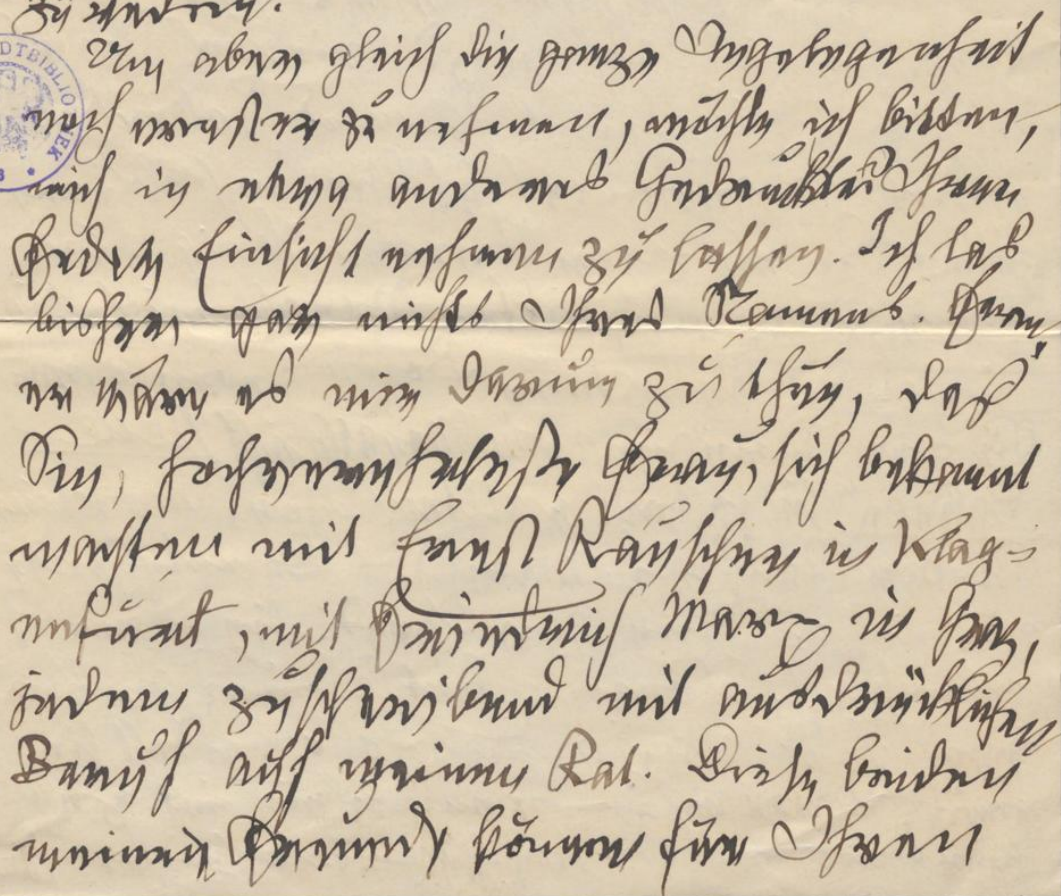 zu werden.
Um aber gleich die ganze Angelegenheit
noch zu nehmen, möchte ich bitten,
mich in etwas anderes Gedrucktes Ihrer
Feder Einsicht nehmen zu lassen. Ich las
bisher gar nichts Ihres Namens. Fern-
er wäre es mir darum zu thun, daß
Sie, hochverehrteste Frau, sich bekannt
machten mit Ernst Rauscher in Klag-
enfurt, mit Friedrich Marx in Graz,
jedem zuschreibend mit ausdrücklichem
Beruf auf meinen Rat. Diese beiden
meiner Freunde können für Ihren